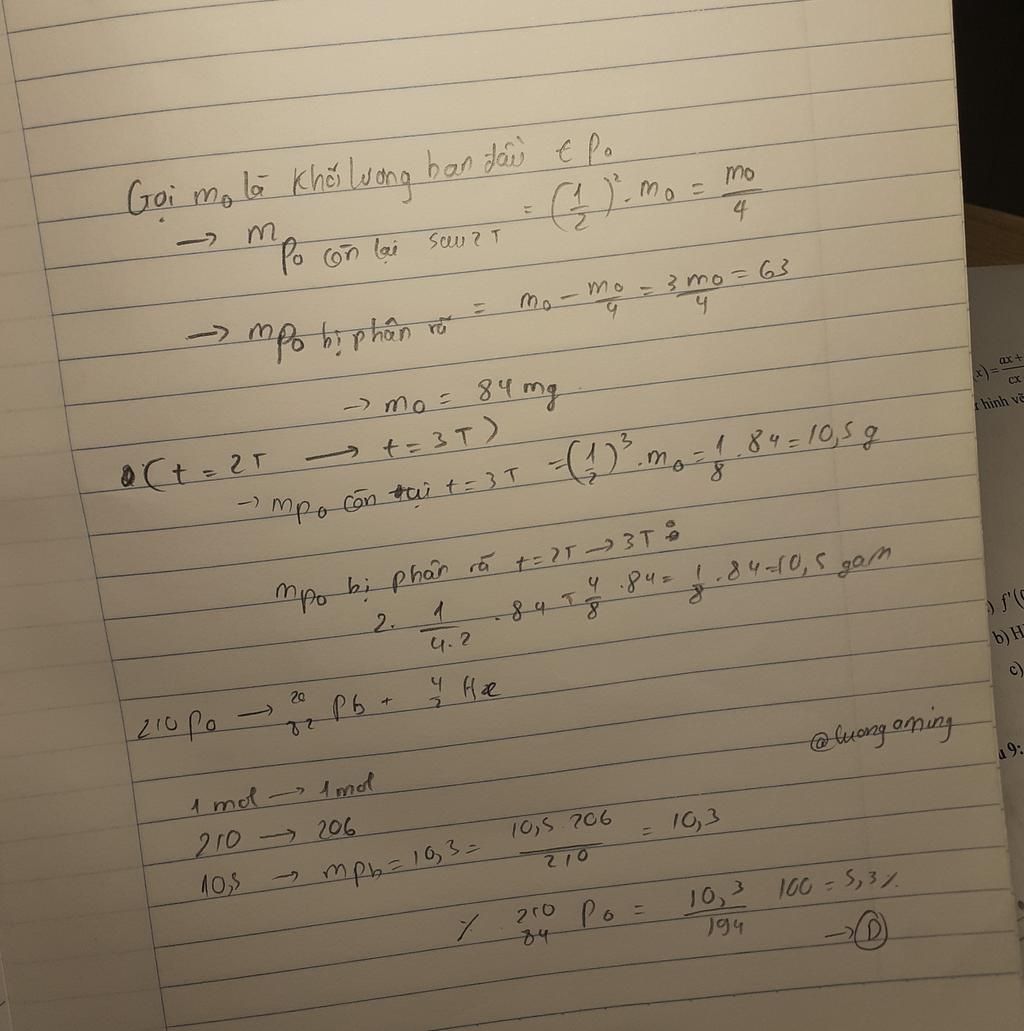 Gọi m₀ là khối lượng ban đầu € Po
→ m Po còn lại sau 2T = (1/2)² . m₀ = m₀/4
→ mPo bị phân rã = m₀ - m₀/4 = 3m₀/4 = 63
→ m₀ = 84 mg
(t = 2T → t = 3T)
→ mPo còn lại t = 3T = (1/2)³ . m₀ = 1/8 . 84 = 10,5 g
mPo bị phân rã t = 2T → 3T :
2. 1/4.2 . 84 = 4/8 . 84 = 1/8 . 84 = 10,5 gam
210 Po → 20/82 Pb + 4/2 He
1 mol → 1 mol
210 → 206
10,5 → mPb = 10,3 = 10,5.206/210 = 10,3
% 210/84 Po = 10,3/194 100 = 5,3%
→ D
@luongaming
x) = ax+/cx
hình vẽ
) f'(
b) H
c)
9: